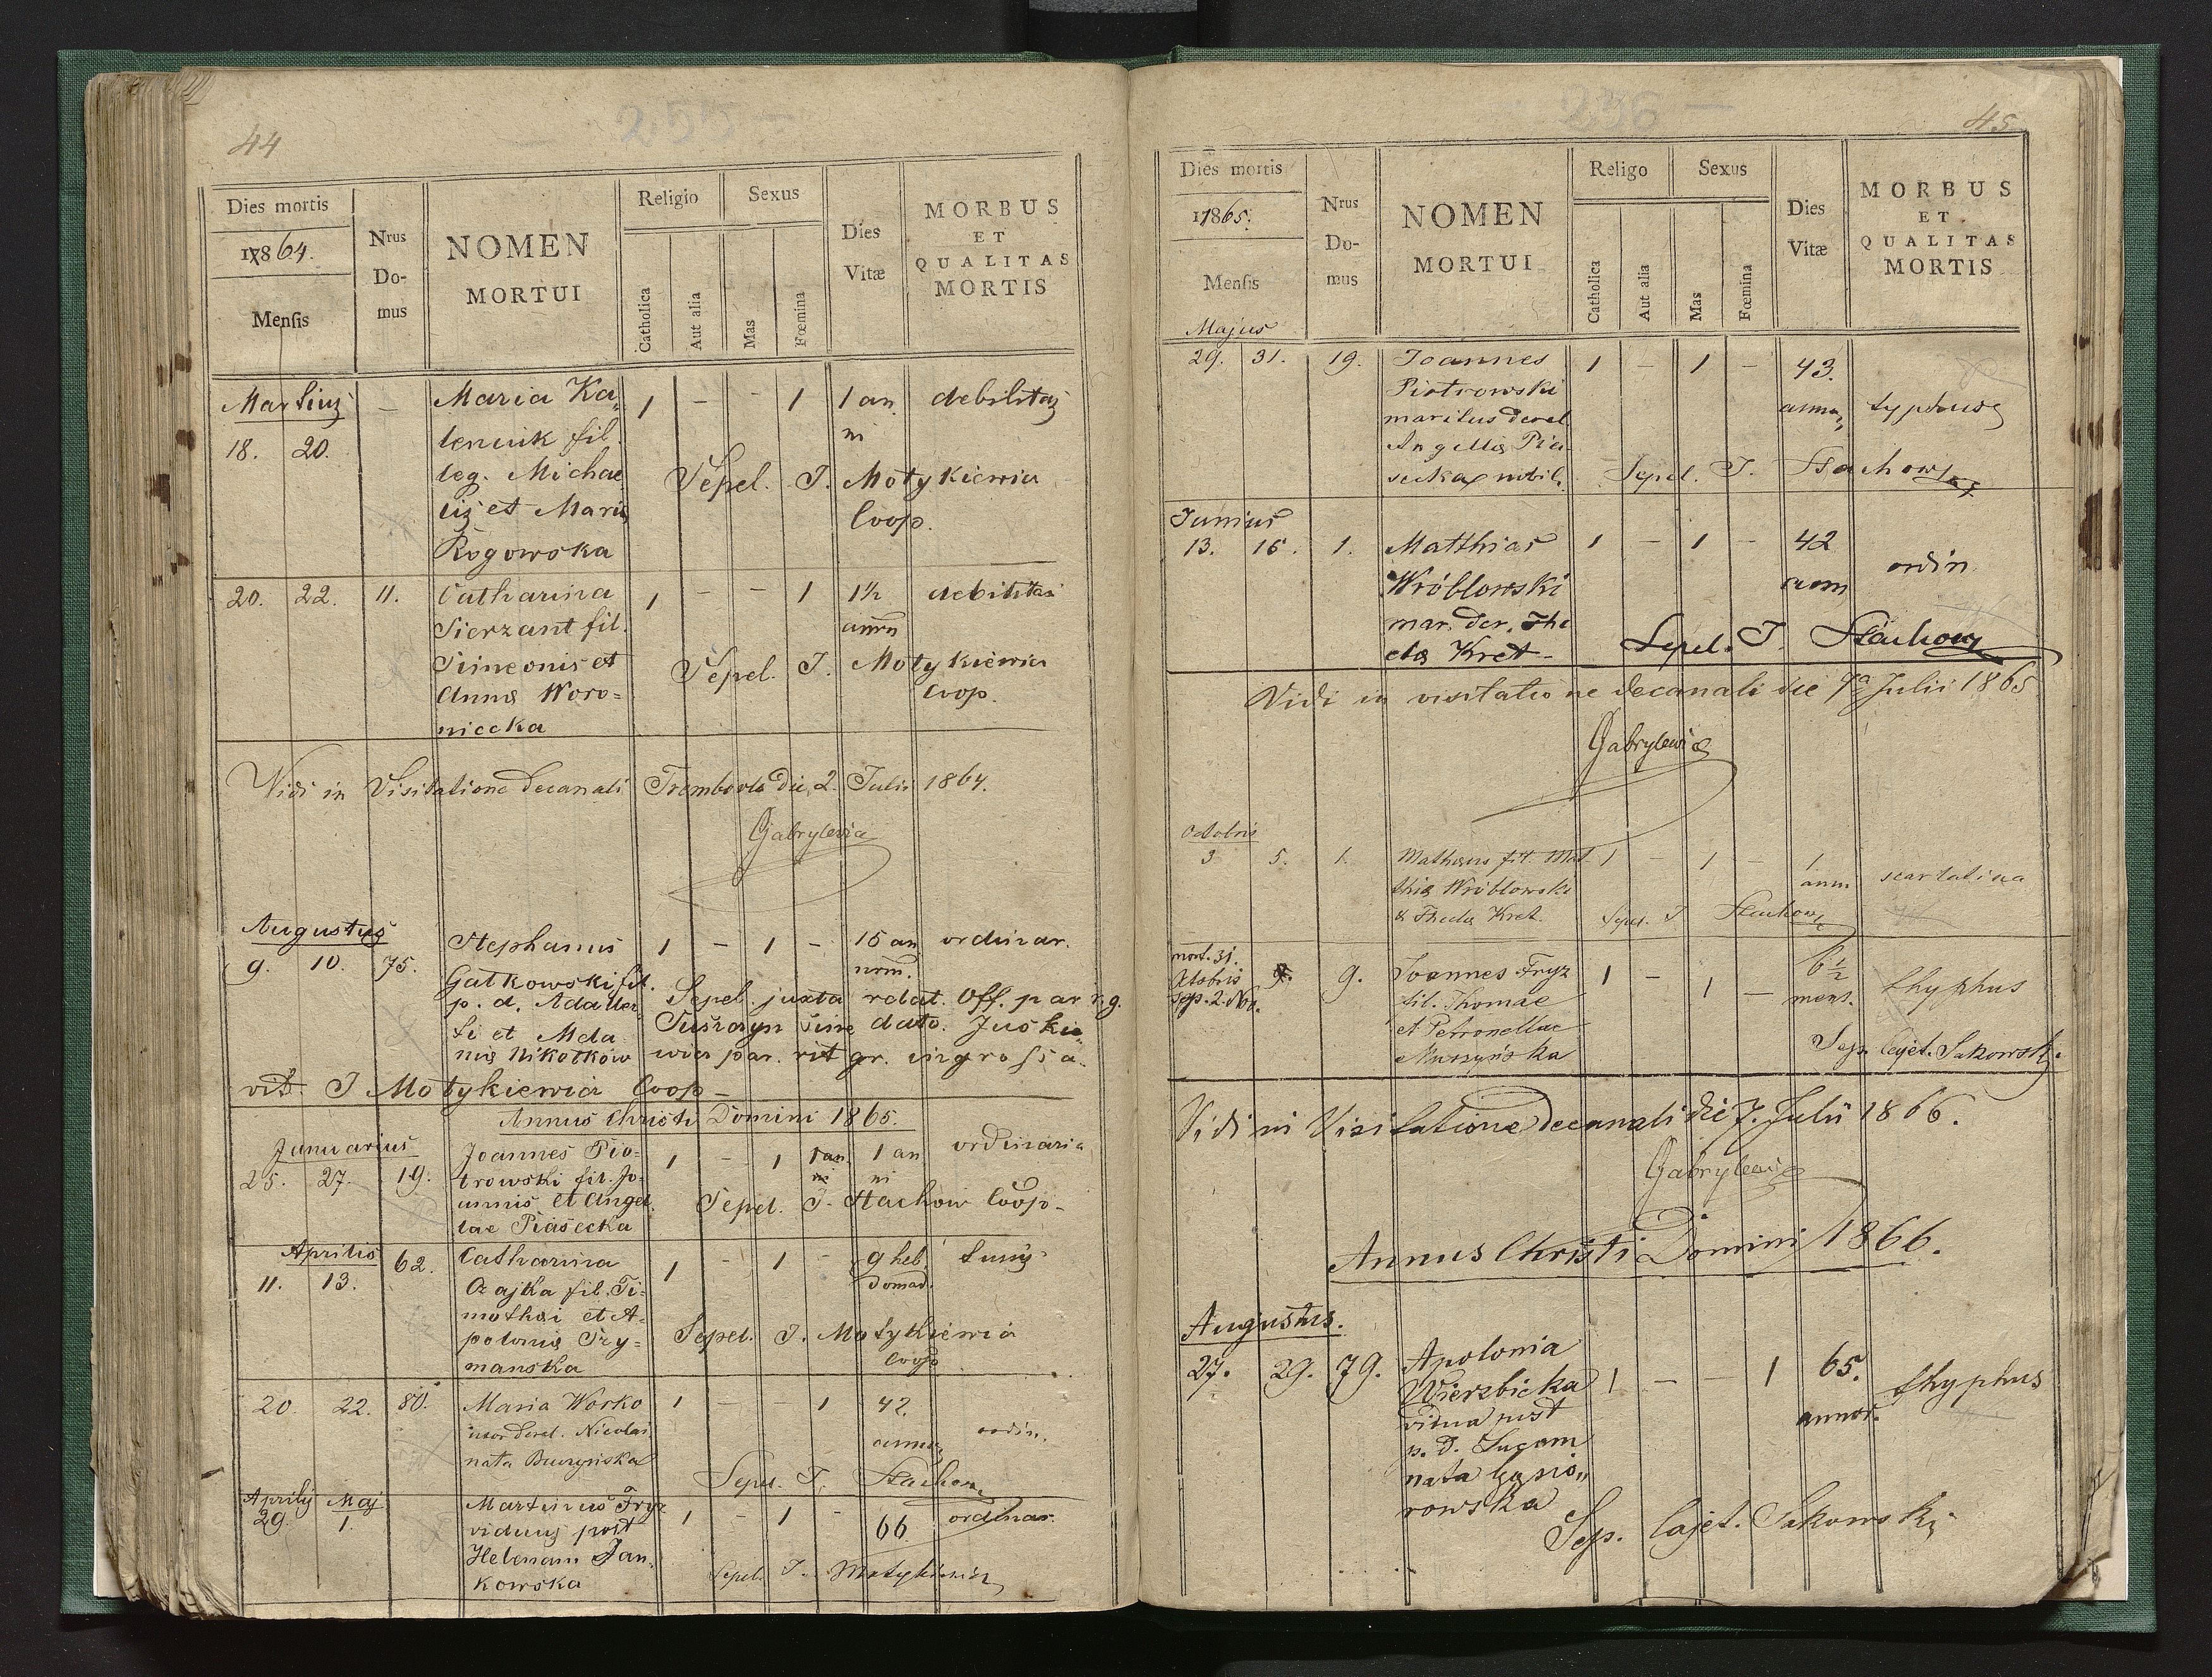 44
255
Dies mortis
1864.
Mensis
Nrus
Do-
mus
NOMEN
MORTUI
Religio
Catholica
Aut alia
Sexus
Mas
Fœmina
Dies
Vitæ
MORBUS
ET
QUALITAS
MORTIS
Martius
18. 20.
—
Maria Ka„
lenuik fil.
leg. Michae
lis et Maria
Rogowska
1 - - 1
1 an
ni
debilitas
Sepel. J. Motykiewicz
Coop.
20. 22. 11.
Catharina
Sierzant fil.
Simeonis et
Anna Woro=
niecka
1 - - 1
1½
annn
debilitas
Sepel. J. Motykiewicz
Coop.
Vidi in Visitatione Decanali Trembovla die 2. Julii 1864.
Gabrylewicz
Augustus
9. 10. 75.
Stephanus
Gatkowski fil.
p. d. Adalber
ti et Mela
nia Nikotków
1 - 1 -
15 an
norm.
ordinar.
Sepel. juxta relat. Off. par r. g.
Susczyn sine dato. Juskie
wicz par. rit gr. ingrossa.
vit. J Motykiewicz Coop -
Annus Christi Domini 1865.
Januarius
25. 27. 19.
Joannes Pio=
trowski fil. Jo-
annis et Angel
lae Piasecka
1 - 1
1 an
ni
1 an
ni
ordinaria
Sepel. J. Stachow Coop-
Aprilis
11. 13. 62.
Catharina
Czajka fil. Ti=
mothei et A=
polonia Szy=
manska
1 - 1 -
9 heb
domad.
tussis
Sepel. J. Motykiewicz
Coop
20. 22. 80.
Maria Worko
uxor derel. Nicolai
nata Buczyńska
1 - - 1
42.
annor
ordin.
Sepel. J. Stachow
Aprilis Maj
29. 1.
Martinus Fryz
viduus post
Helenam Jan„
kowska
1 - 1 -
66
ordinar.
Sepel. J. Motykiewicz
236
45
Dies mortis
1865.
Mensis
Nrus
Do-
mus
NOMEN
MORTUI
Religo
Catholica
Aut alia
Sexus
Mas
Fœmina
Dies
Vitæ
MORBUS
ET
QUALITAS
MORTIS
Majus
29. 31. 19.
Joannes
Piotrowski
maritus derel.
Angella Pia
secka nobil.
1 - 1 -
43.
annor
typhus
Sepel. J. Stachow
Junius
13. 15. 1.
Matthias
Wróblowski
mar. der. The
cla Kret -
1 - 1 -
42
ann
ordin
Sepel. J. Stachow
Vidi in visitatione Decanali die 7a Julii 1865
Gabrylewicz
Octobris
3 5. 1.
Mathaus fil. Mat
thia Wróblowski
& Thecla Kret.
1 - 1 -
1
ann
scarlatina
Sepel. J Stachow
mort. 31.
Octobris
sep. 2. Nov.
9.
Joannes Fryz
fil. Thomae
et Petronellae
Muszyńska
1 - 1 -
6½
mens.
thyphus
Sep. Cajet. Sakowski.
Vidi in Visitatione Decanali die 7. Julii 1866.
Gabrylewicz
Annus Christi Domini 1866.
Augustus.
27. 29. 79.
Apolonia
Wierzbicka
vidua post
p. d. Lucam
nata Gąsio„
rowska
1 - - 1
65.
annor.
thyphus
Sep. Cajet. Sakowski